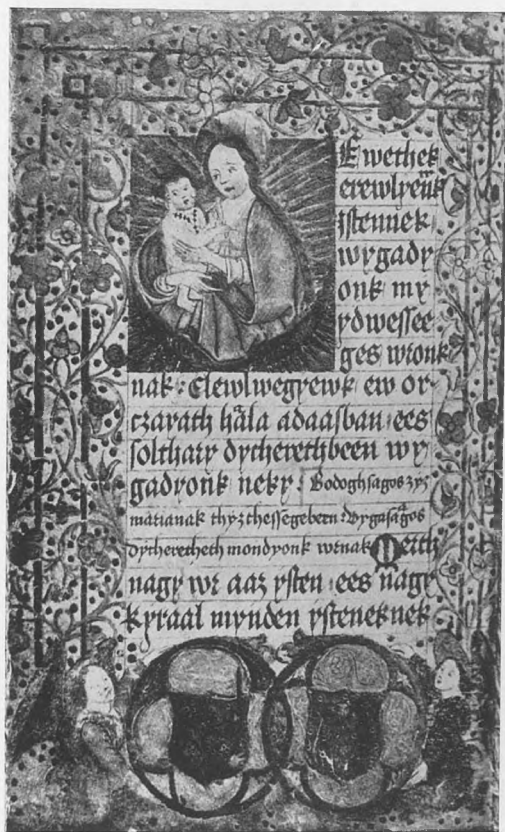 Ewethek
erewlyenk
istennek
wygady
onk my
ydwessee
ges wronk
nak : Elewlwegyewk ew or-
czarath hala adaasban : ees
solthaiy dycherethbeen wy
gadyonk neky : Bodoghsagos zyz
marianak thyzthessegebeen : Vygasagos
dycheretheth mondyonk wrnak Merth
nagy wr aaz ysten : ees nagy
kyraal mynden ysteneknek